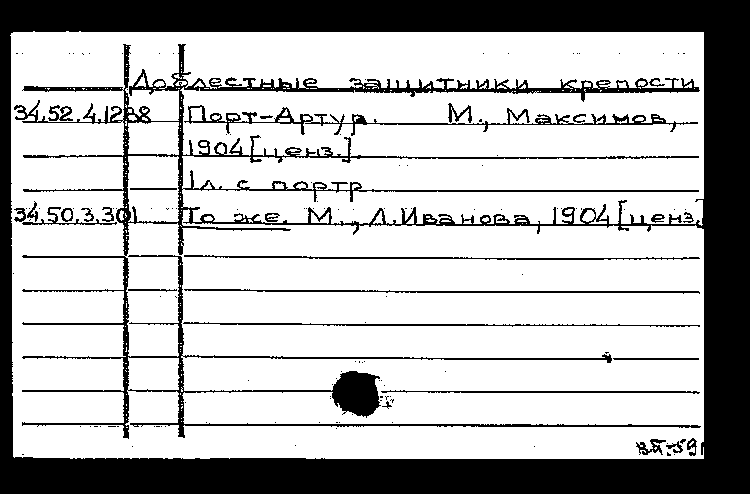 Доблестные защитники крепости
34.52.4.1288 Порт-Артур. М., Максимов,
1904 [ценз.].
1 л. с портр.
34.50.3.301 То же. М., Л. Иванова, 1904 [ценз.]